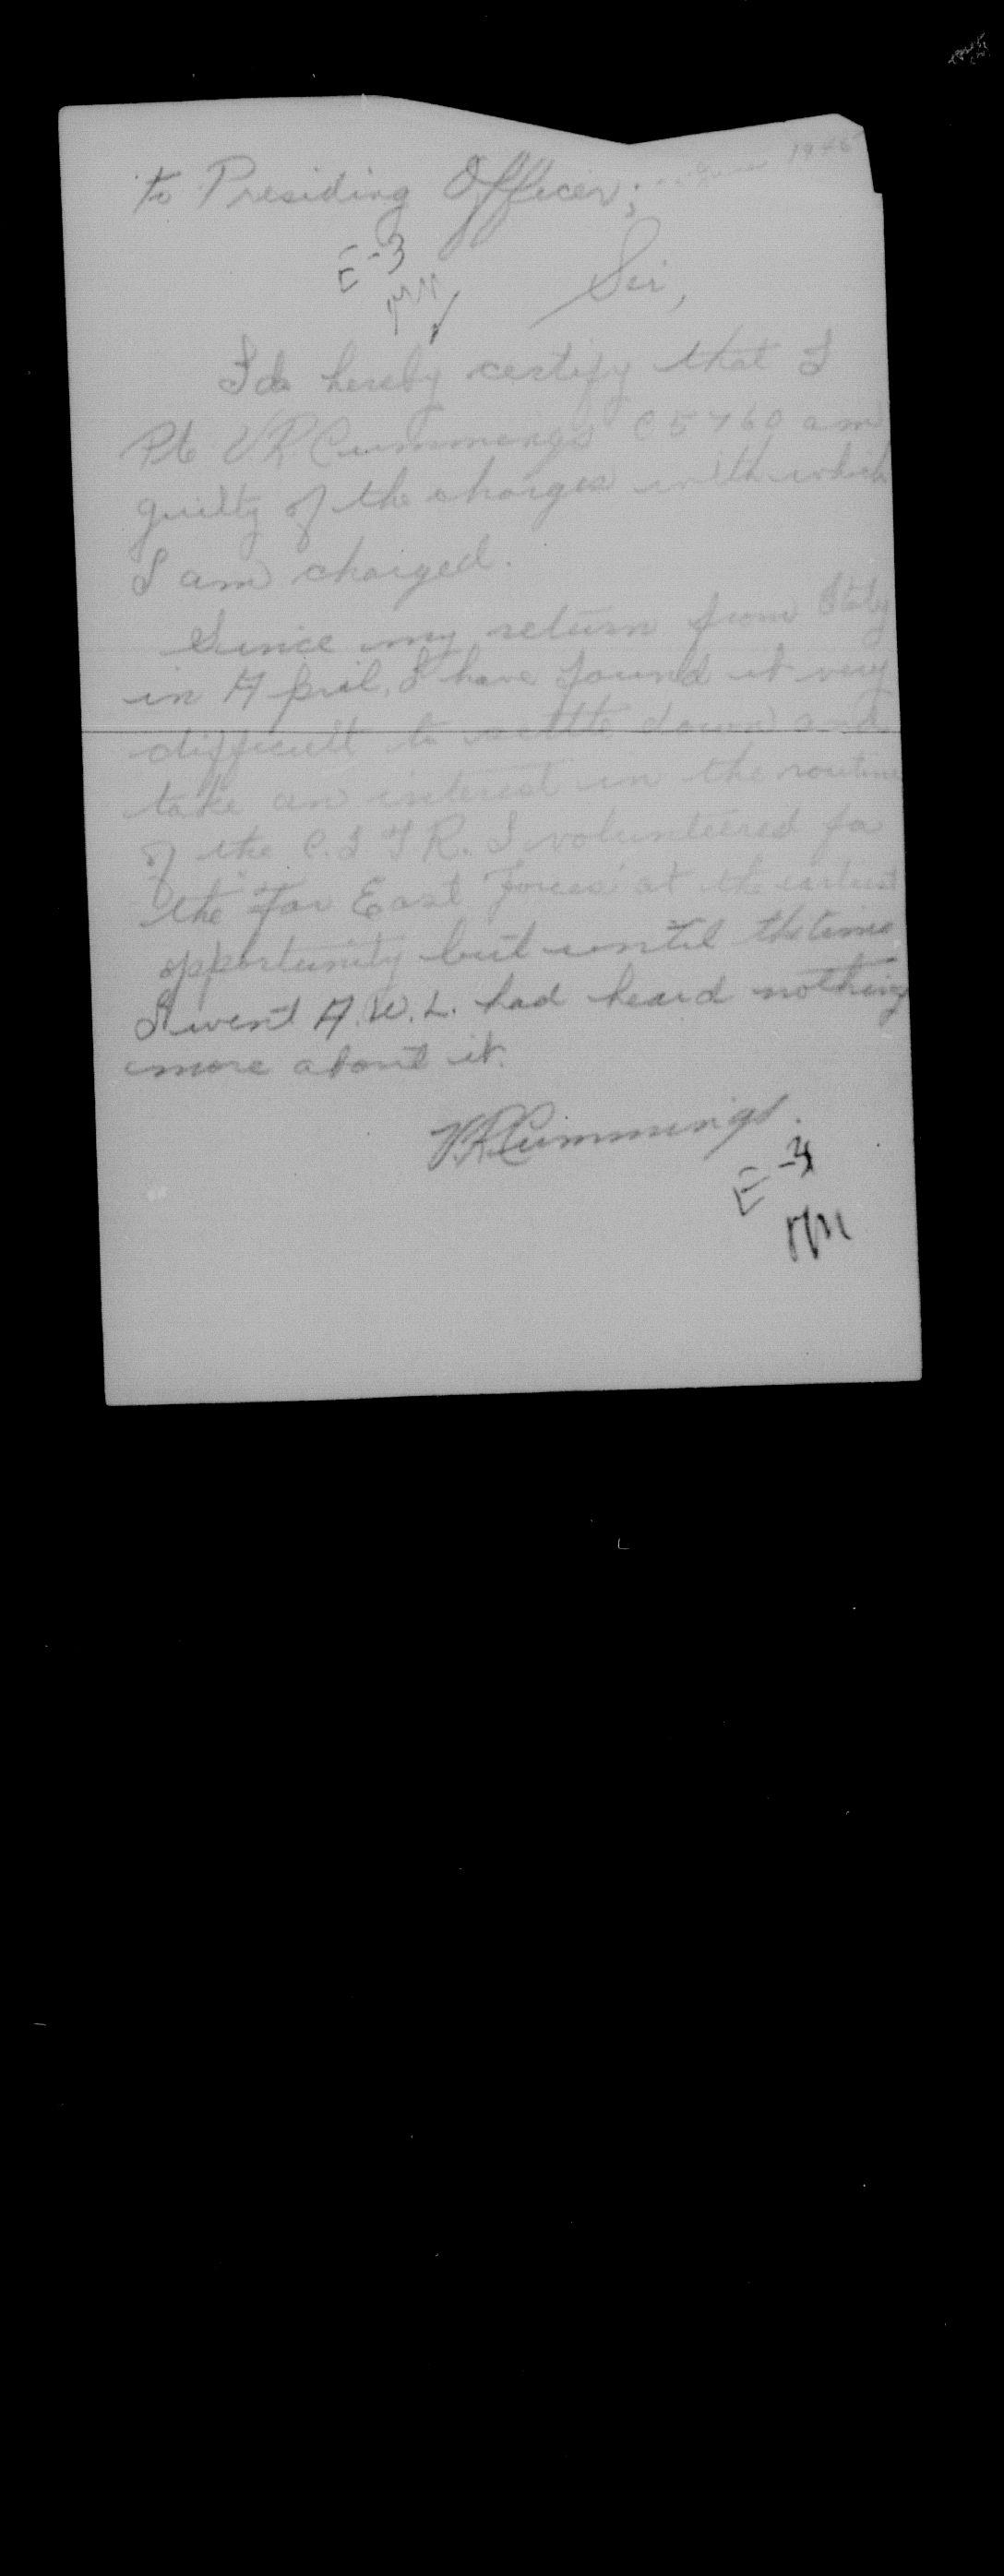 to Presiding Officer; 1945
E-3
Sir,
I do hereby certify that I
Pte VR Cummings C5760 am
guilty of the charges with which
I am charged.
Since my return from Italy
in April, I have found it very
difficult to settle down and
take an interest in the routine
of the C.I.T.R. I volunteered for
the "Far East Forces" at the earliest
opportunity but until the time
I went A.W.L. had heard nothing
more about it.
VR Cummings.
E-3